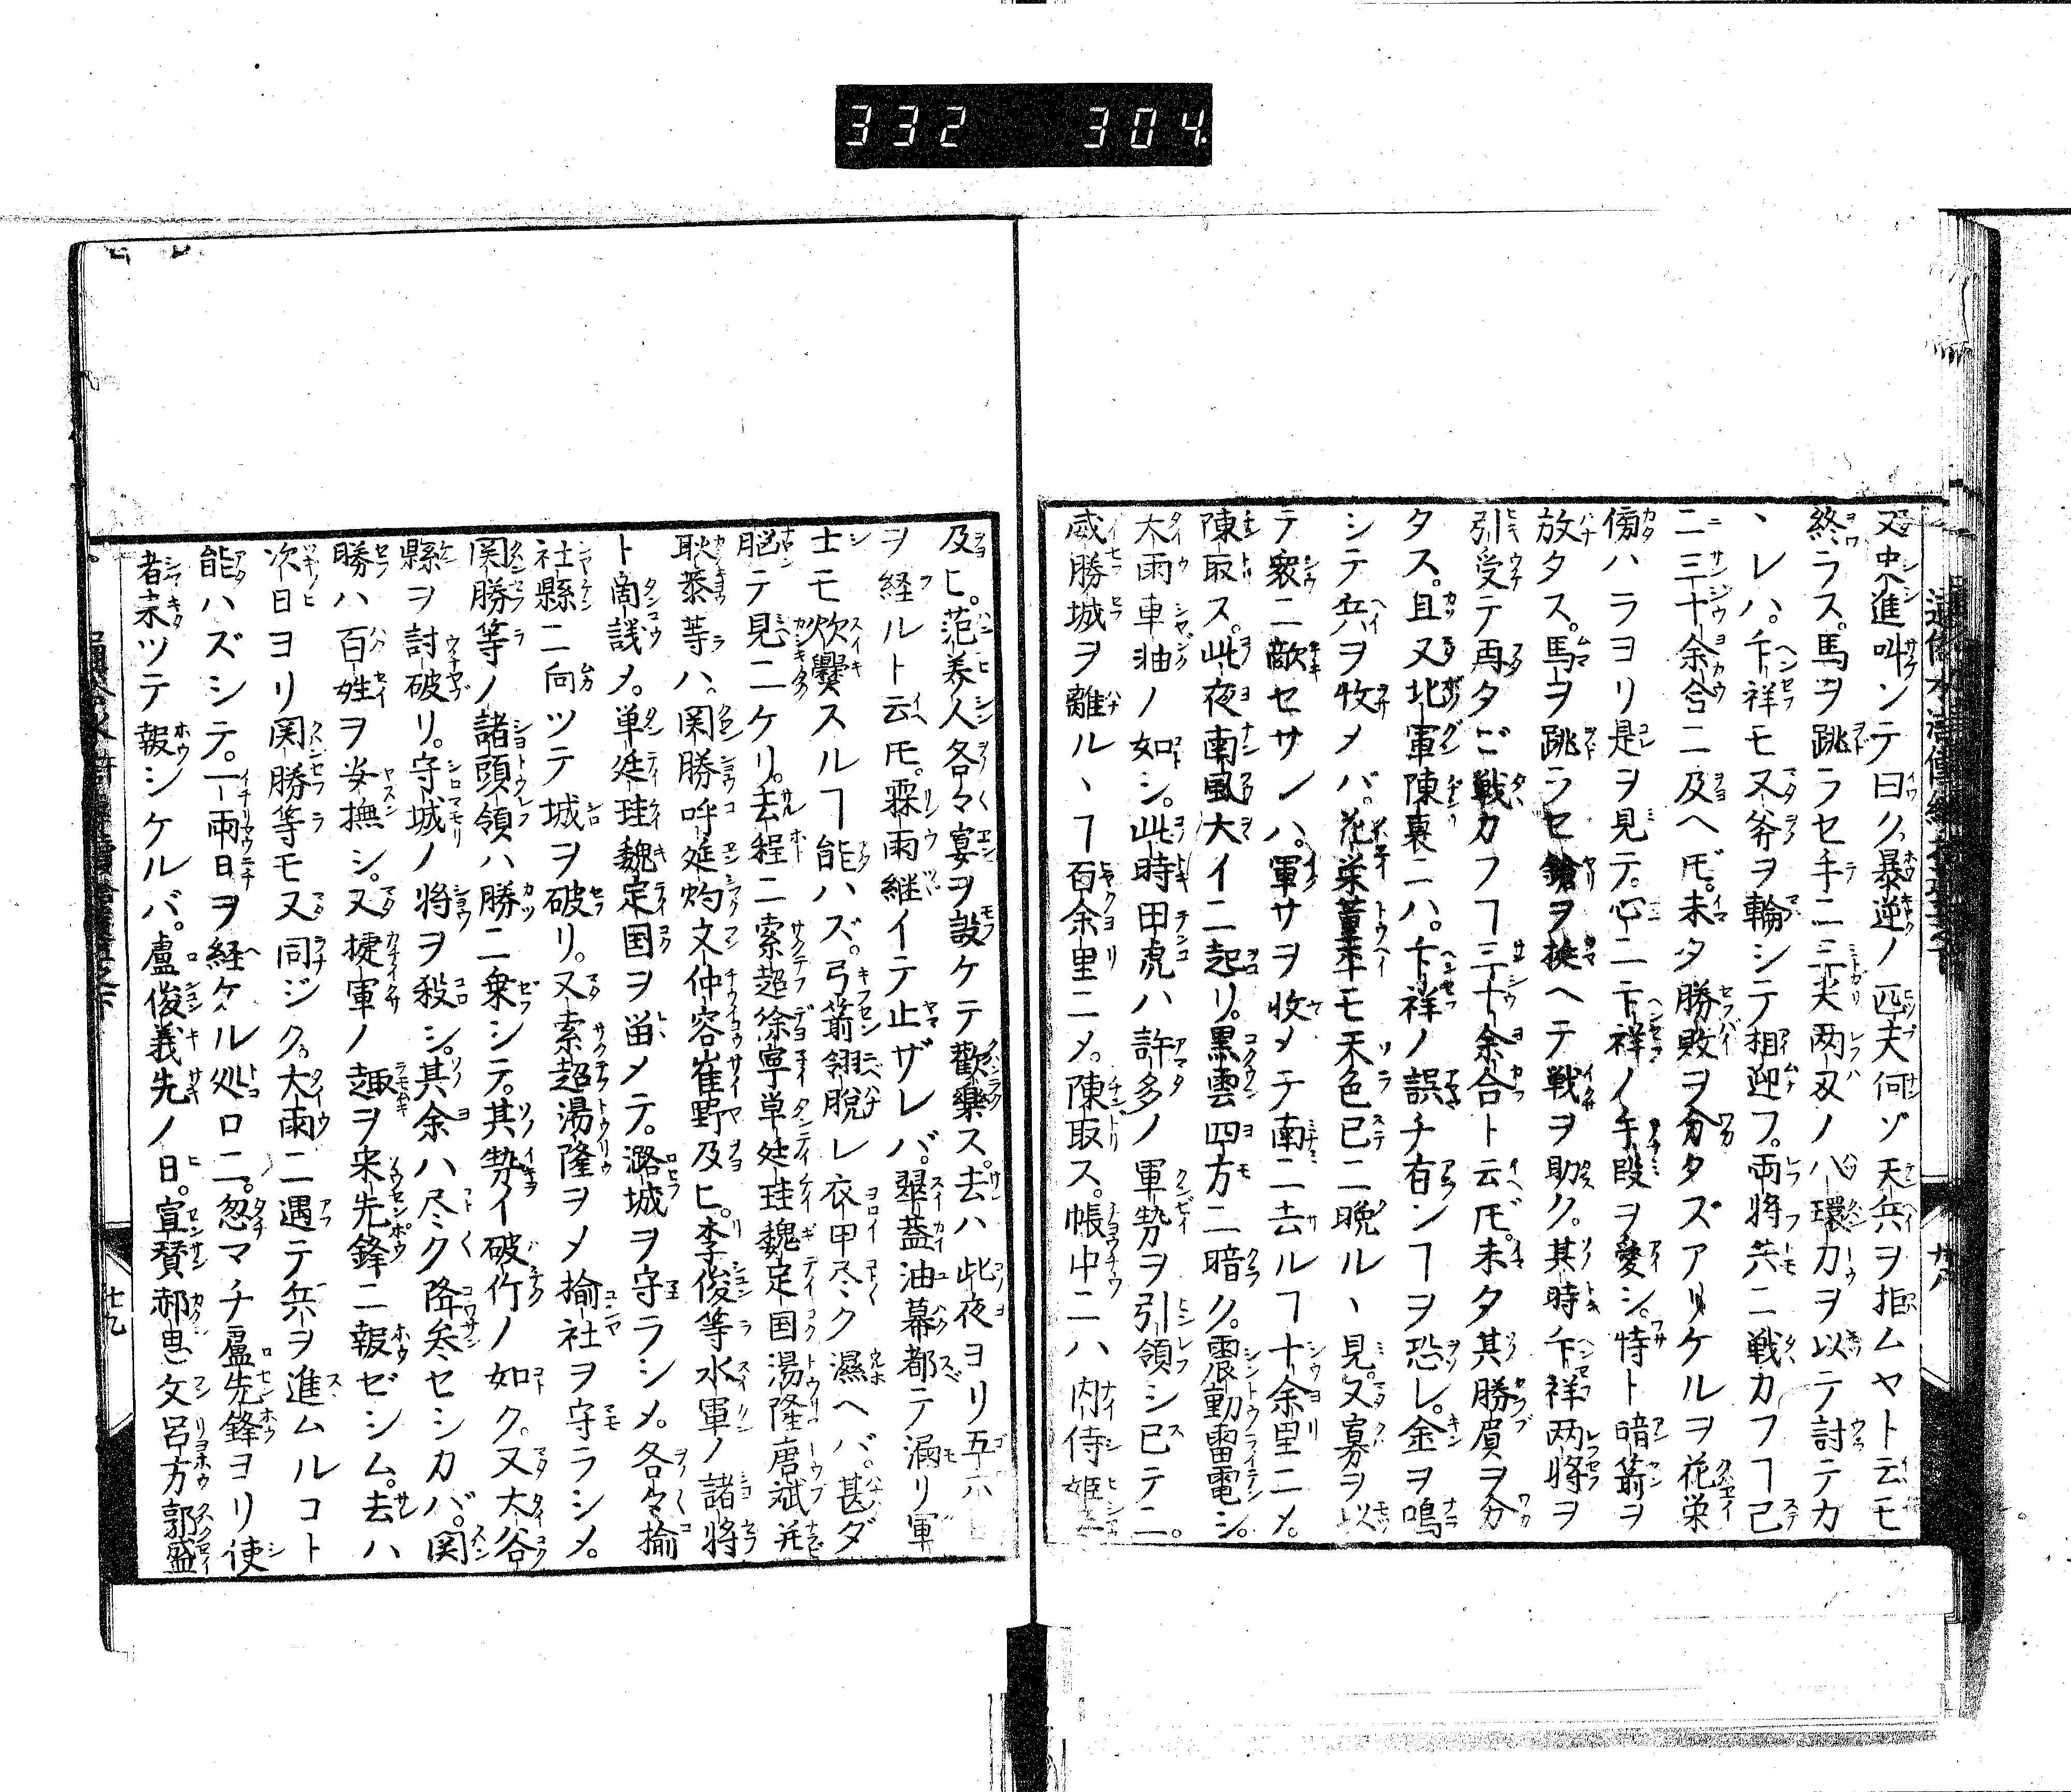 332 304
又史進叫ンテ曰ク暴逆ノ匹夫何ゾ天兵ヲ拒ムヤト云モ
終ラス。馬ヲ跳ラセ手ニ三尖两刄ノ八環刀ヲ以テ討テカ
ヽレハ。卞祥モ又斧ヲ輪シテ相迎フ。両將共ニ戦カフヿ已
ニ三十余合ニ及ヘ𪜈。未タ勝敗ヲ分タズアリケルヲ花栄
傍ハラヨリ是ヲ見テ。心ニ卞祥ノ手段ヲ愛シ。特ト暗箭ヲ
放タス。馬ヲ跳ラセ鎗ヲ挾ヘテ戦ヲ助ク。其時卞祥两將ヲ
引受テ再タビ戦カフヿ三十余合ト云𪜈。未タ其勝負ヲ分
タス。且又北軍陳裏ニハ。卞祥ノ誤チ有ンヿヲ恐レ。金ヲ鳴
シテ兵ヲ收メバ。花栄董平モ天色已ニ晩ルヽ見。又寡ヲ以
テ衆ニ敵セサンハ。軍サヲ收メテ南ニ去ルヿ十余里ニメ。
陳取ス。此夜南風大イニ起リ。黒雲四方ニ暗ク。震動雷電シ。
大雨車軸ノ如シ。此時田虎ハ許多ノ軍勢ヲ引領シ已テニ。
威勝城ヲ離ルヽヿ百余里ニメ。陳取ス。帳中ニハ内侍姫妾
及ヒ。范美人各々宴ヲ設ケテ歡樂ス。去ハ此夜ヨリ五六日
ヲ経ルト云𪜈。霖雨継イテ止ザレバ。翠蓋油幕都テ漏リ軍
士モ炊爨スルヿ能ハズ。弓箭翎脱レ衣甲尽ク濕ヘバ。甚ダ
脳テ見ニケリ。去程ニ索超徐寧単廷珪魏定国湯隆唐斌并
耿恭等ハ。関勝呼延灼文仲容崔野及ヒ。李俊等水軍ノ諸將
ト商議メ。単廷珪魏定国ヲ畄メテ。潞城ヲ守ラシメ。各々楡
社縣ニ向ツテ城ヲ破リ。又索超湯隆ヲメ楡社ヲ守ラシメ。
関勝等ノ諸頭領ハ勝ニ乗シテ。其勢イ破竹ノ如ク。又大谷
縣ヲ討破リ。守城ノ將ヲ殺シ。其余ハ尽ク降参セシカバ。関
勝ハ百姓ヲ安撫シ。又捷軍ノ趣ヲ宋先鋒ニ報ゼシム。去ハ
次日ヨリ関勝等モ又同ジク。大雨ニ遇テ兵ヲ進ムルコト
能ハズシテ。一両日ヲ経ケル処ロニ。忽マチ盧先鋒ヨリ使
者来ツテ報シケルバ。盧俊義先ノ日。宣賛郝思文呂方郭盛